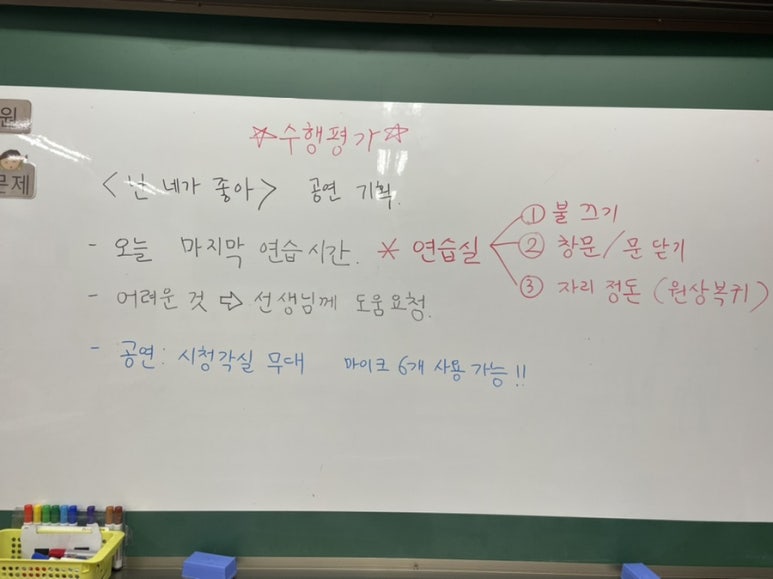 원
문제
☆수행평가☆
<난 네가 좋아> 공연 기획.
- 오늘 마지막 연습시간. * 연습실
① 불 끄기
② 창문/문 닫기
③ 자리 정돈 (원상복귀)
- 어려운 것 ⇨ 선생님께 도움요청.
- 공연: 시청각실 무대 마이크 6개 사용 가능!!